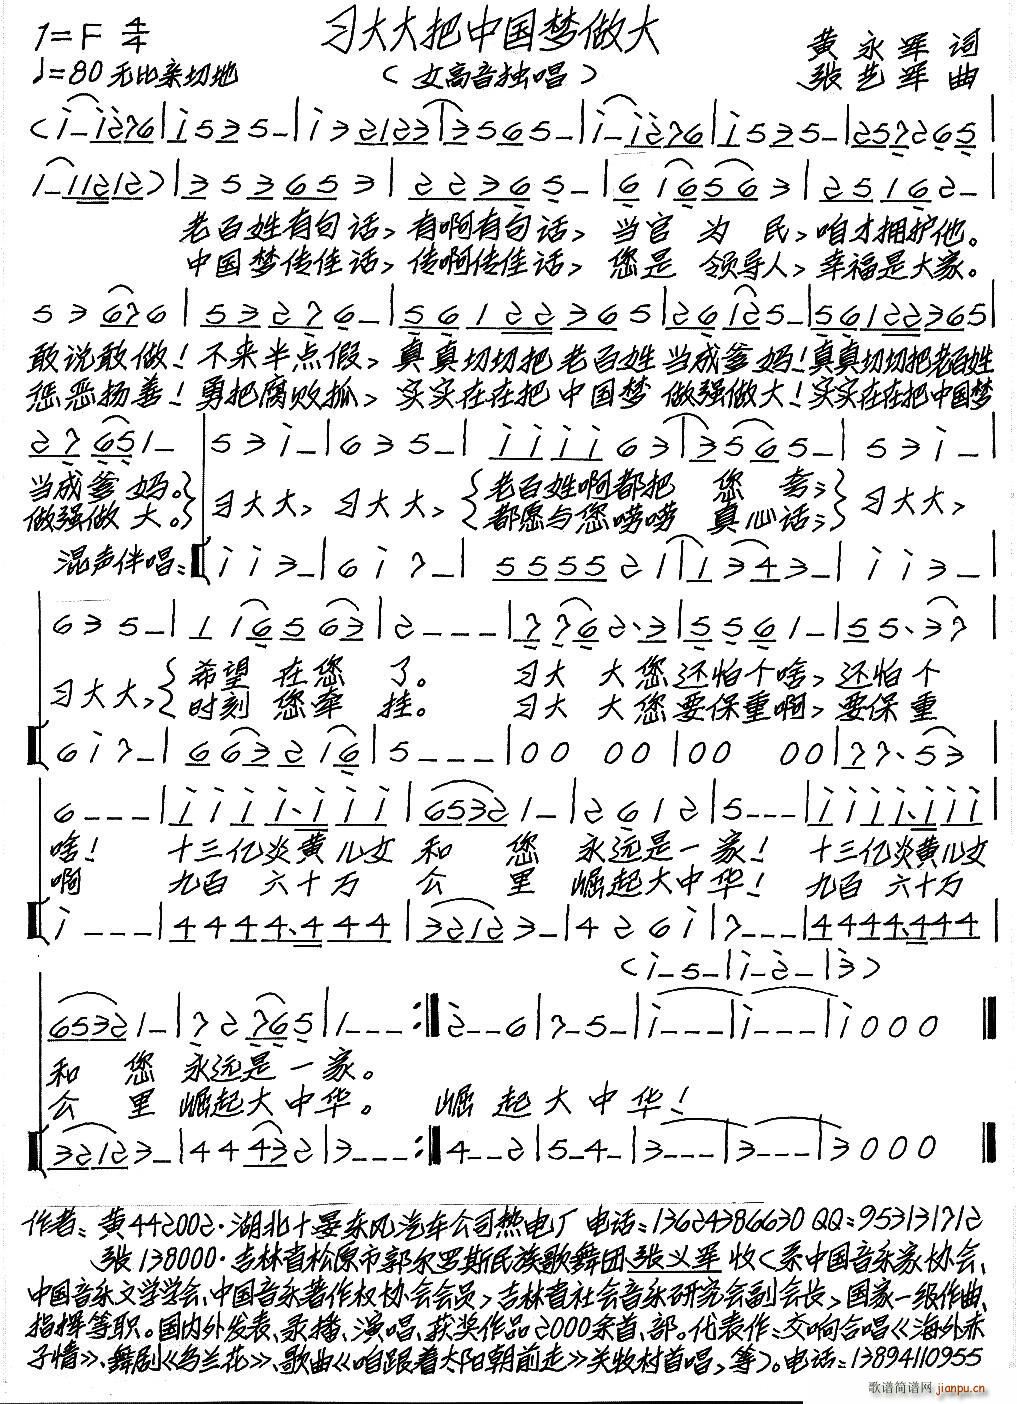 习大大把中国梦做大
1=F 4/4
♩=80 无比亲切地
(女高音独唱)
黄永军 词
张艺军 曲
老百姓有句话,有啊有句话,当官为民,咱才拥护他。
中国梦传佳话,传啊传佳话,您是领导人,幸福是大家。
敢说敢做!不来半点假,真真切切把老百姓当成爹妈!真真切切把老百姓
惩恶扬善!勇把腐败抓,实实在在把中国梦做强做大!实实在在把中国梦
当成爹妈。 习大大,习大大,老百姓啊都把您夸; 习大大,
做强做大。 都愿与您唠唠真心话;
混声伴唱:
习大大, 希望在您了。 习大大您还怕个啥,还怕个
时刻您牵挂。 习大大您要保重啊,要保重
啥! 十三亿炎黄儿女和您永远是一家! 十三亿炎黄儿女
啊 九百六十万公里崛起大中华! 九百六十万
和您永远是一家。
公里崛起大中华。 崛起大中华!
作者:黄442002·湖北十堰东风汽车公司热电厂 电话:13624386630 QQ:953131712
张138000·吉林省松原市郭尔罗斯民族歌舞团张义军收(系中国音乐家协会、
中国音乐文学学会、中国音乐著作权协会会员,吉林省社会音乐研究会副会长,国家一级作曲、
指挥等职。国内外发表、录播、演唱、获奖作品2000余首、部。代表作:交响合唱《海外赤
子情》、舞剧《乌兰花》、歌曲《咱跟着太阳朝前走》关牧村首唱,等)。电话:13894110955
歌谱简谱网 jianpu.cn